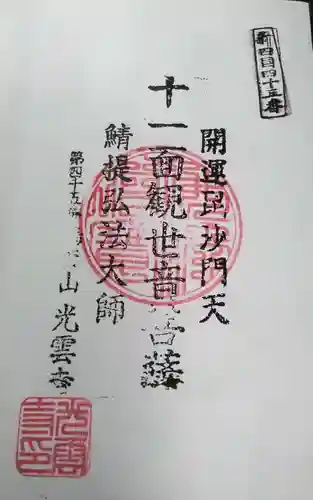 新四国四十五番
開運毘沙門天
十一面観世音菩薩
鯖提弘法大師
第四十五番
山光雲寺